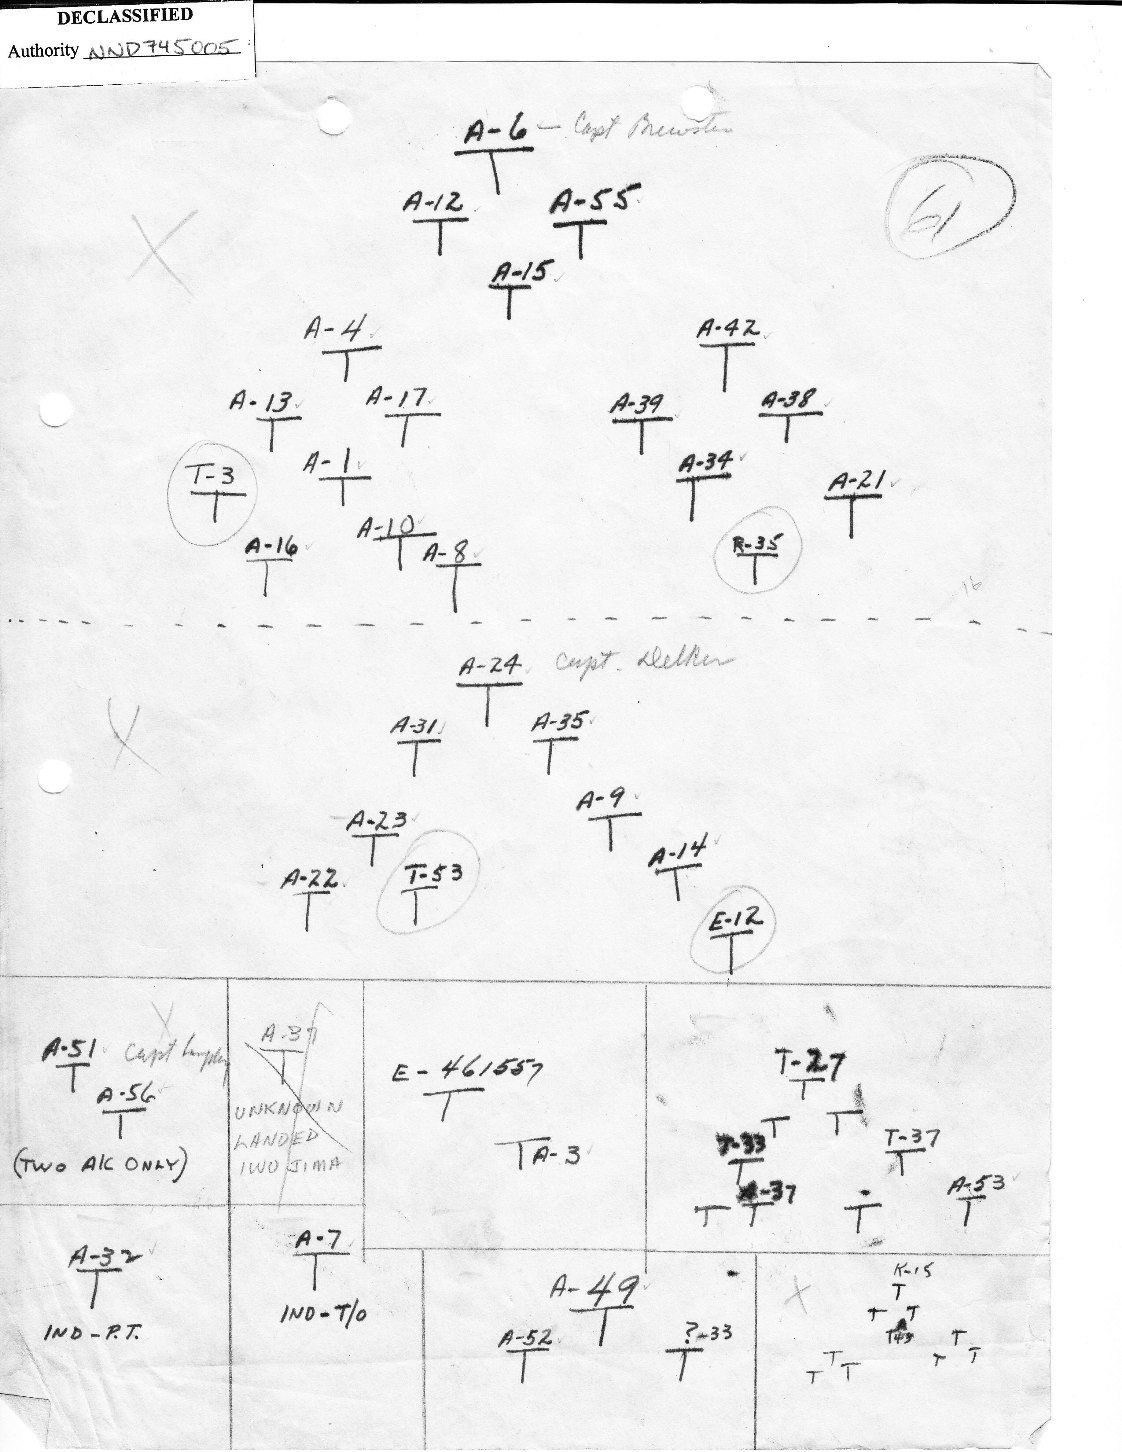 DECLASSIFIED
Authority NND745005
A-6 — Capt Brewster
61
A-12 A-55
A-15
A-4 A-42
A-13 A-17 A-39 A-38
T-3 A-1 A-34 A-21
A-16 A-10 A-8 R-35
16
A-24 Capt.
A-31 A-35
A-23 A-9
A-22 T-53 A-14
E-12
A-51 Capt
A-56
(TWO A/C ONLY)
A-37
UNKNOWN
LANDED
IWO JIMA
E-461557
A-3
T-27
T-33 T-37
A-37 A-53
A-32
IND-P.T.
A-7
IND-T/O
A-49
A-52 ?-33
K-15
A
43